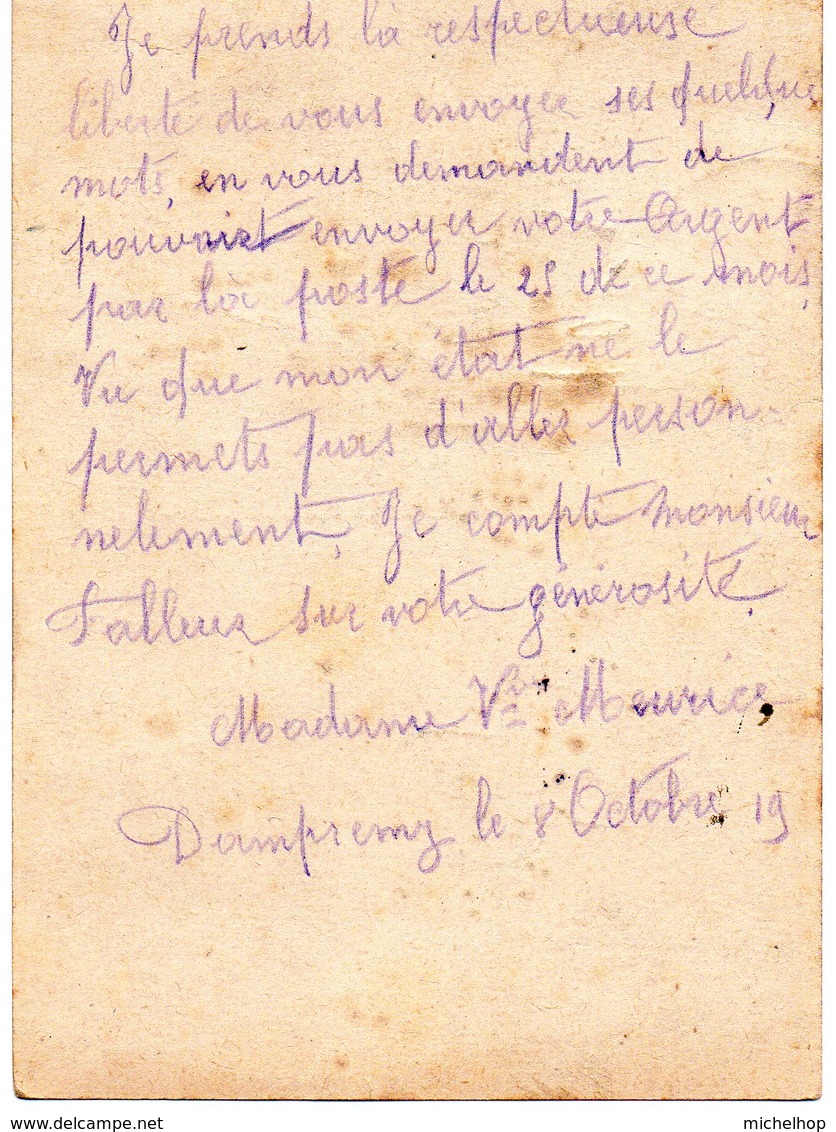 Je prends là respectueuse
liberté de vous envoyer ses quelque
mots, en vous demandent de
pouvoir envoyer votre Argent
par là poste le 25 de ce mois,
Vu que mon état ne le
permets pas d'aller person-
nelement, Je compte Monsieur
Falleur sur votre générosité,
Madame Vve Meurice,
Dampremy le 8 Octobre 19
www.delcampe.net
michelhop